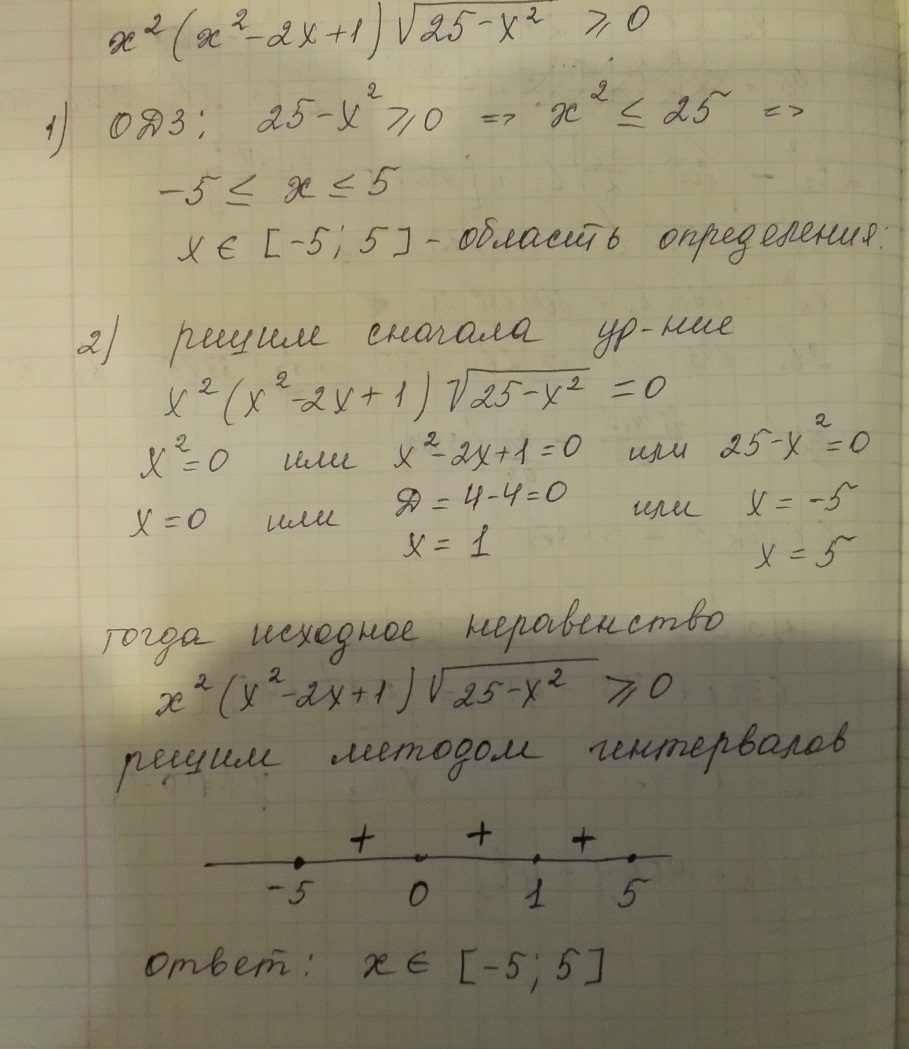 x² (x² - 2x + 1) √25 - x² ≥ 0
1) ОДЗ; 25 - x² ≥ 0 => x² ≤ 25 =>
-5 ≤ x ≤ 5
x ∈ [-5; 5] - область определения:
2) решим сначала ур-ние
x² (x² - 2x + 1) √25 - x² = 0
x² = 0 или x² - 2x + 1 = 0 или 25 - x² = 0
x = 0 или Д = 4 - 4 = 0 или x = -5
x = 1 x = 5
тогда исходное неравенство
x² (x² - 2x + 1) √25 - x² ≥ 0
решим методом интервалов
+ + +
-5 0 1 5
ответ: x ∈ [-5; 5]